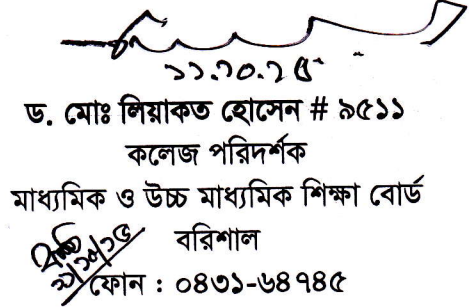 ১১.১০.২৫
ড. মোঃ লিয়াকত হোসেন # ৯৫১১
কলেজ পরিদর্শক
মাধ্যমিক ও উচ্চ মাধ্যমিক শিক্ষা বোর্ড
বরিশাল
ফোন : ০৪৩১-৬৪৭৪৫